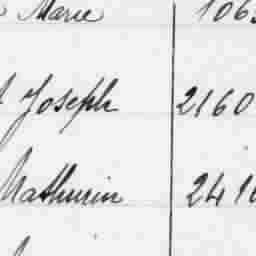 Marie 106
Joseph 2160
Mathurin 241